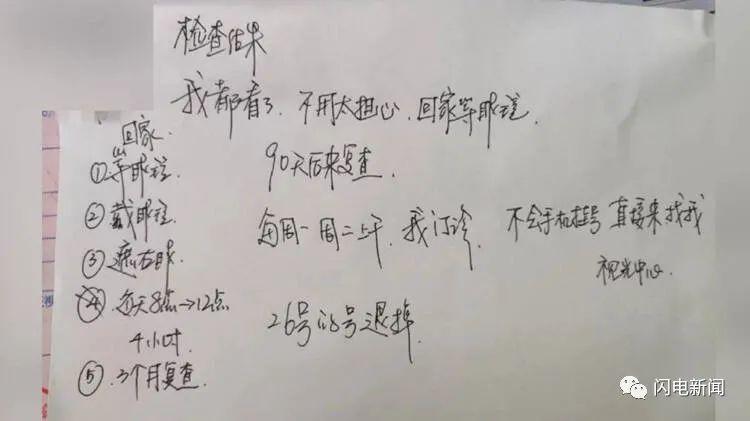 检查结果
我都看了，不用太担心，回家等眼镜，
90天后来复查。
每周一周二上午，我门诊，不会手机挂号 直接来找我
视光中心。
26号的号退掉
回家
①等眼镜
②戴眼镜
③遮右眼
④每天8点→12点
4小时
⑤3个月复查
闪电新闻